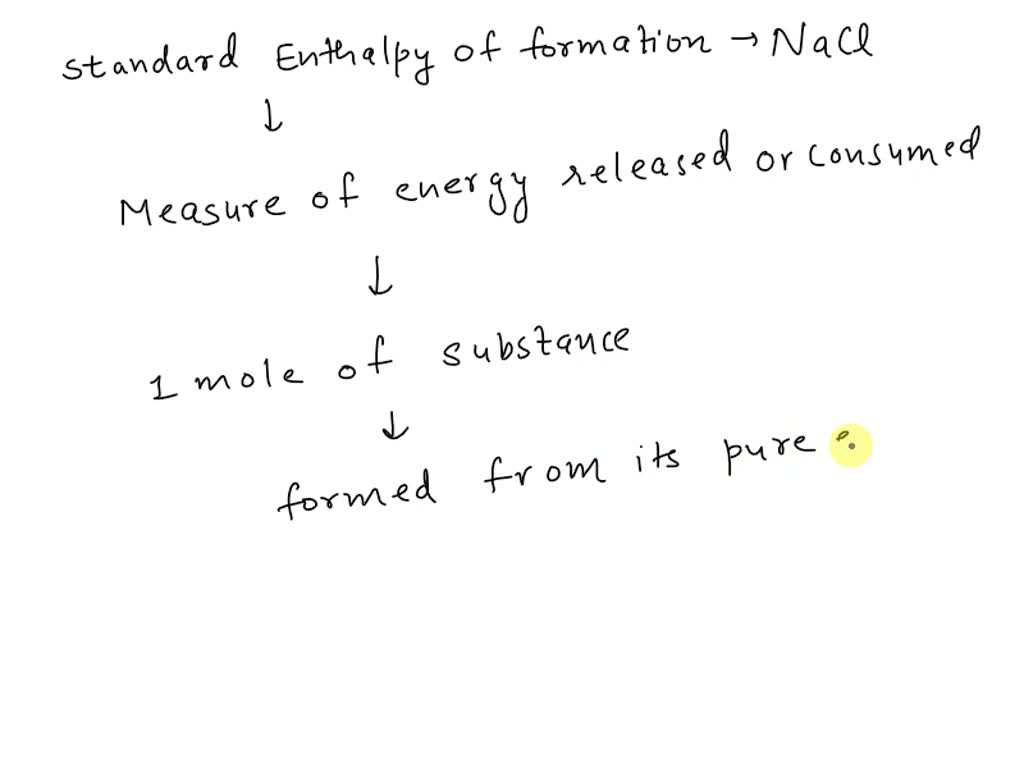 standard Enthalpy of formation → NaCl
↓
Measure of energy released or consumed
↓
1 mole of substance
↓
formed from its pure